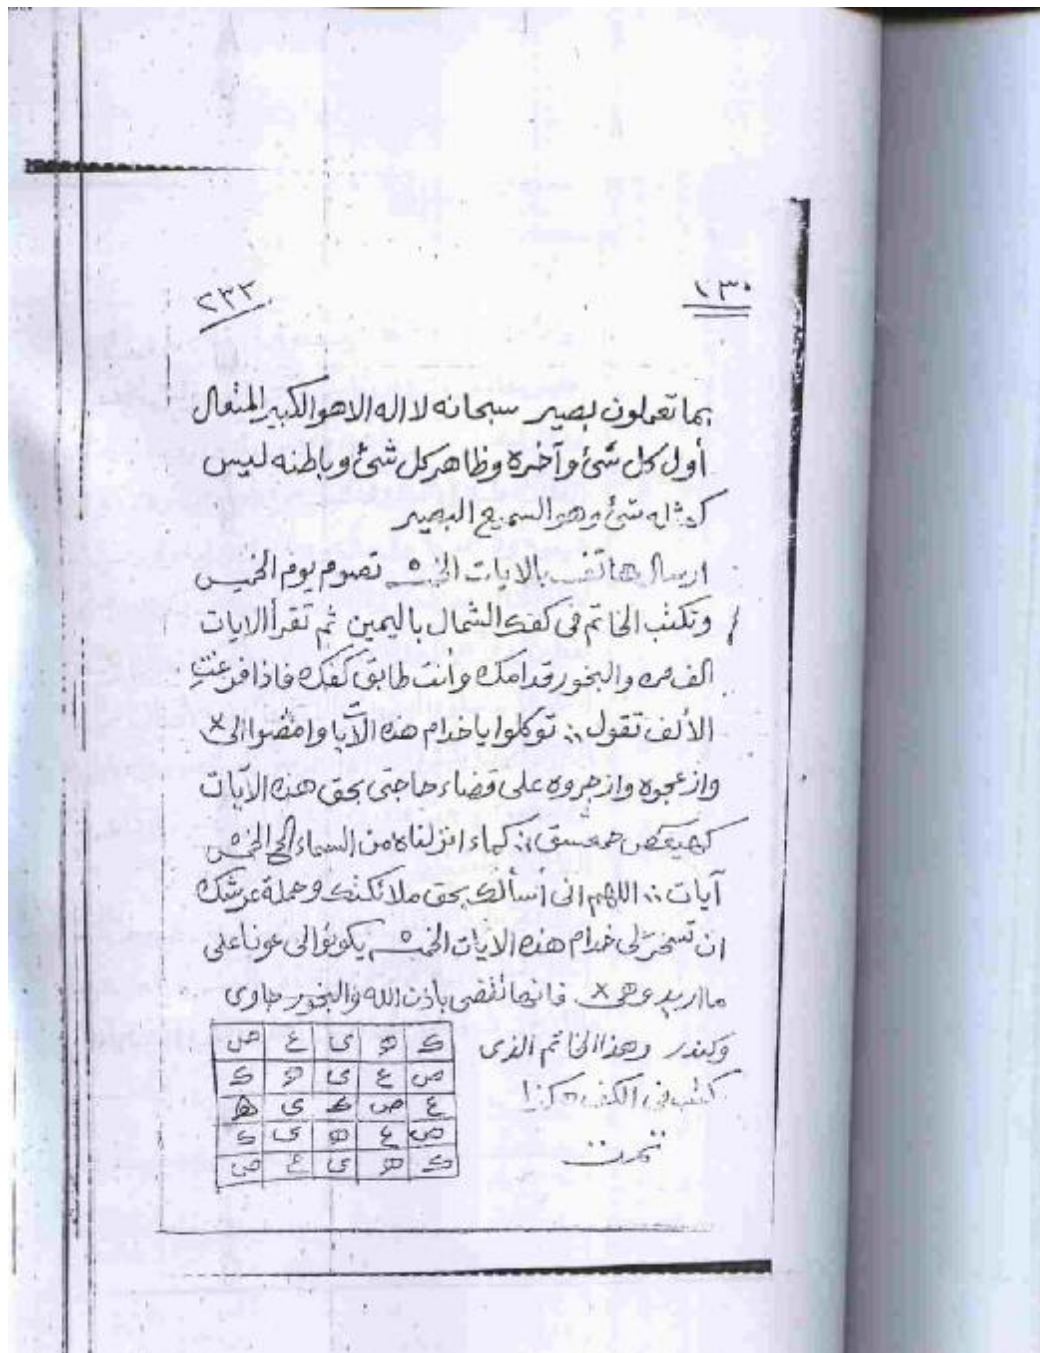 ١٣٠
٢٣٣
بما تعملون بصير سبحانه لا اله الا هو الكبير المتعال
أول كل شئ وآخره وظاهر كل شئ وباطنه ليس
كمثله شئ وهو السميع البصير
ارسال هاتف بالايات الخمسه تصوم يوم الخميس
وتكتب الخاتم فى كفك الشمال باليمين ثم تقرأ الايات
الف مره والبخور قدامك وأنت طابق كفك فاذا فرغت
الألف تقول توكلوا ياخدام هذه الآيا وامضوا الى ×
وازعجوه وازجروه على قضاء حاجتى بحق هذه الآيات
كهيعص حمعسق كماء انزلناه من السماء الخمس
آيات اللهم انى أسألك بحق ملائكتك وحملة عرشك
ان تسخر لى خدام هذه الايات الخمسه يكونوا لى عونا على
ما اريد وهى × فانها تقضى باذن الله والبخور جاوى
وكندر وهذا الخاتم الذى
كتب فى الكف هكذا
تمت
ك ه ى ع ص
ص ع ى ه ك
ع ص ك ى ه
ص ع ه ى ك
ك ه ى ع ص